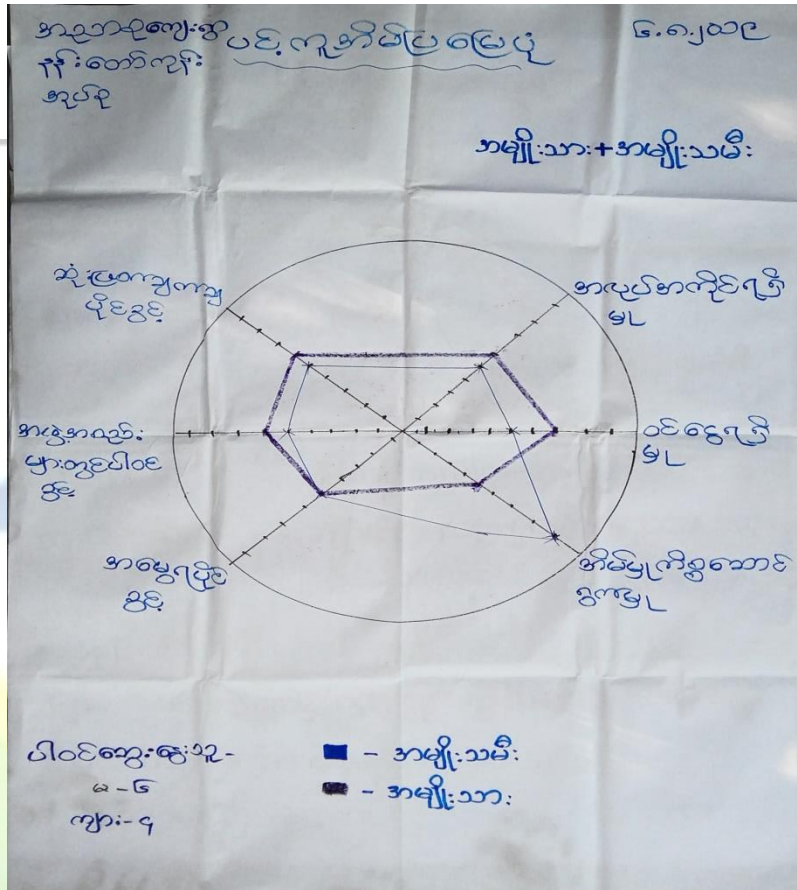 အညာစုကျေးရွာ
နန်းတော်ကုန်း
အုပ်စု
ပင့်ကူအိမ်ပြမြေပုံ
၆.၈.၂၀၁၉
အမျိုးသား+အမျိုးသမီး
ဆုံးဖြတ်ချက်ချ
ပိုင်ခွင့်
အလုပ်အကိုင်ရရှိ
မှု
အဖွဲ့အစည်း
များတွင်ပါဝင်
ခွင့်
ဝင်ငွေရရှိ
မှု
အမွေရပိုင်
ခွင့်
အိမ်မှုကိစ္စဆောင်
ရွက်မှု
ပါဝင်ဆွေးနွေးသူ-
မ-၆
ကျား-၄
- အမျိုးသမီး
- အမျိုးသား